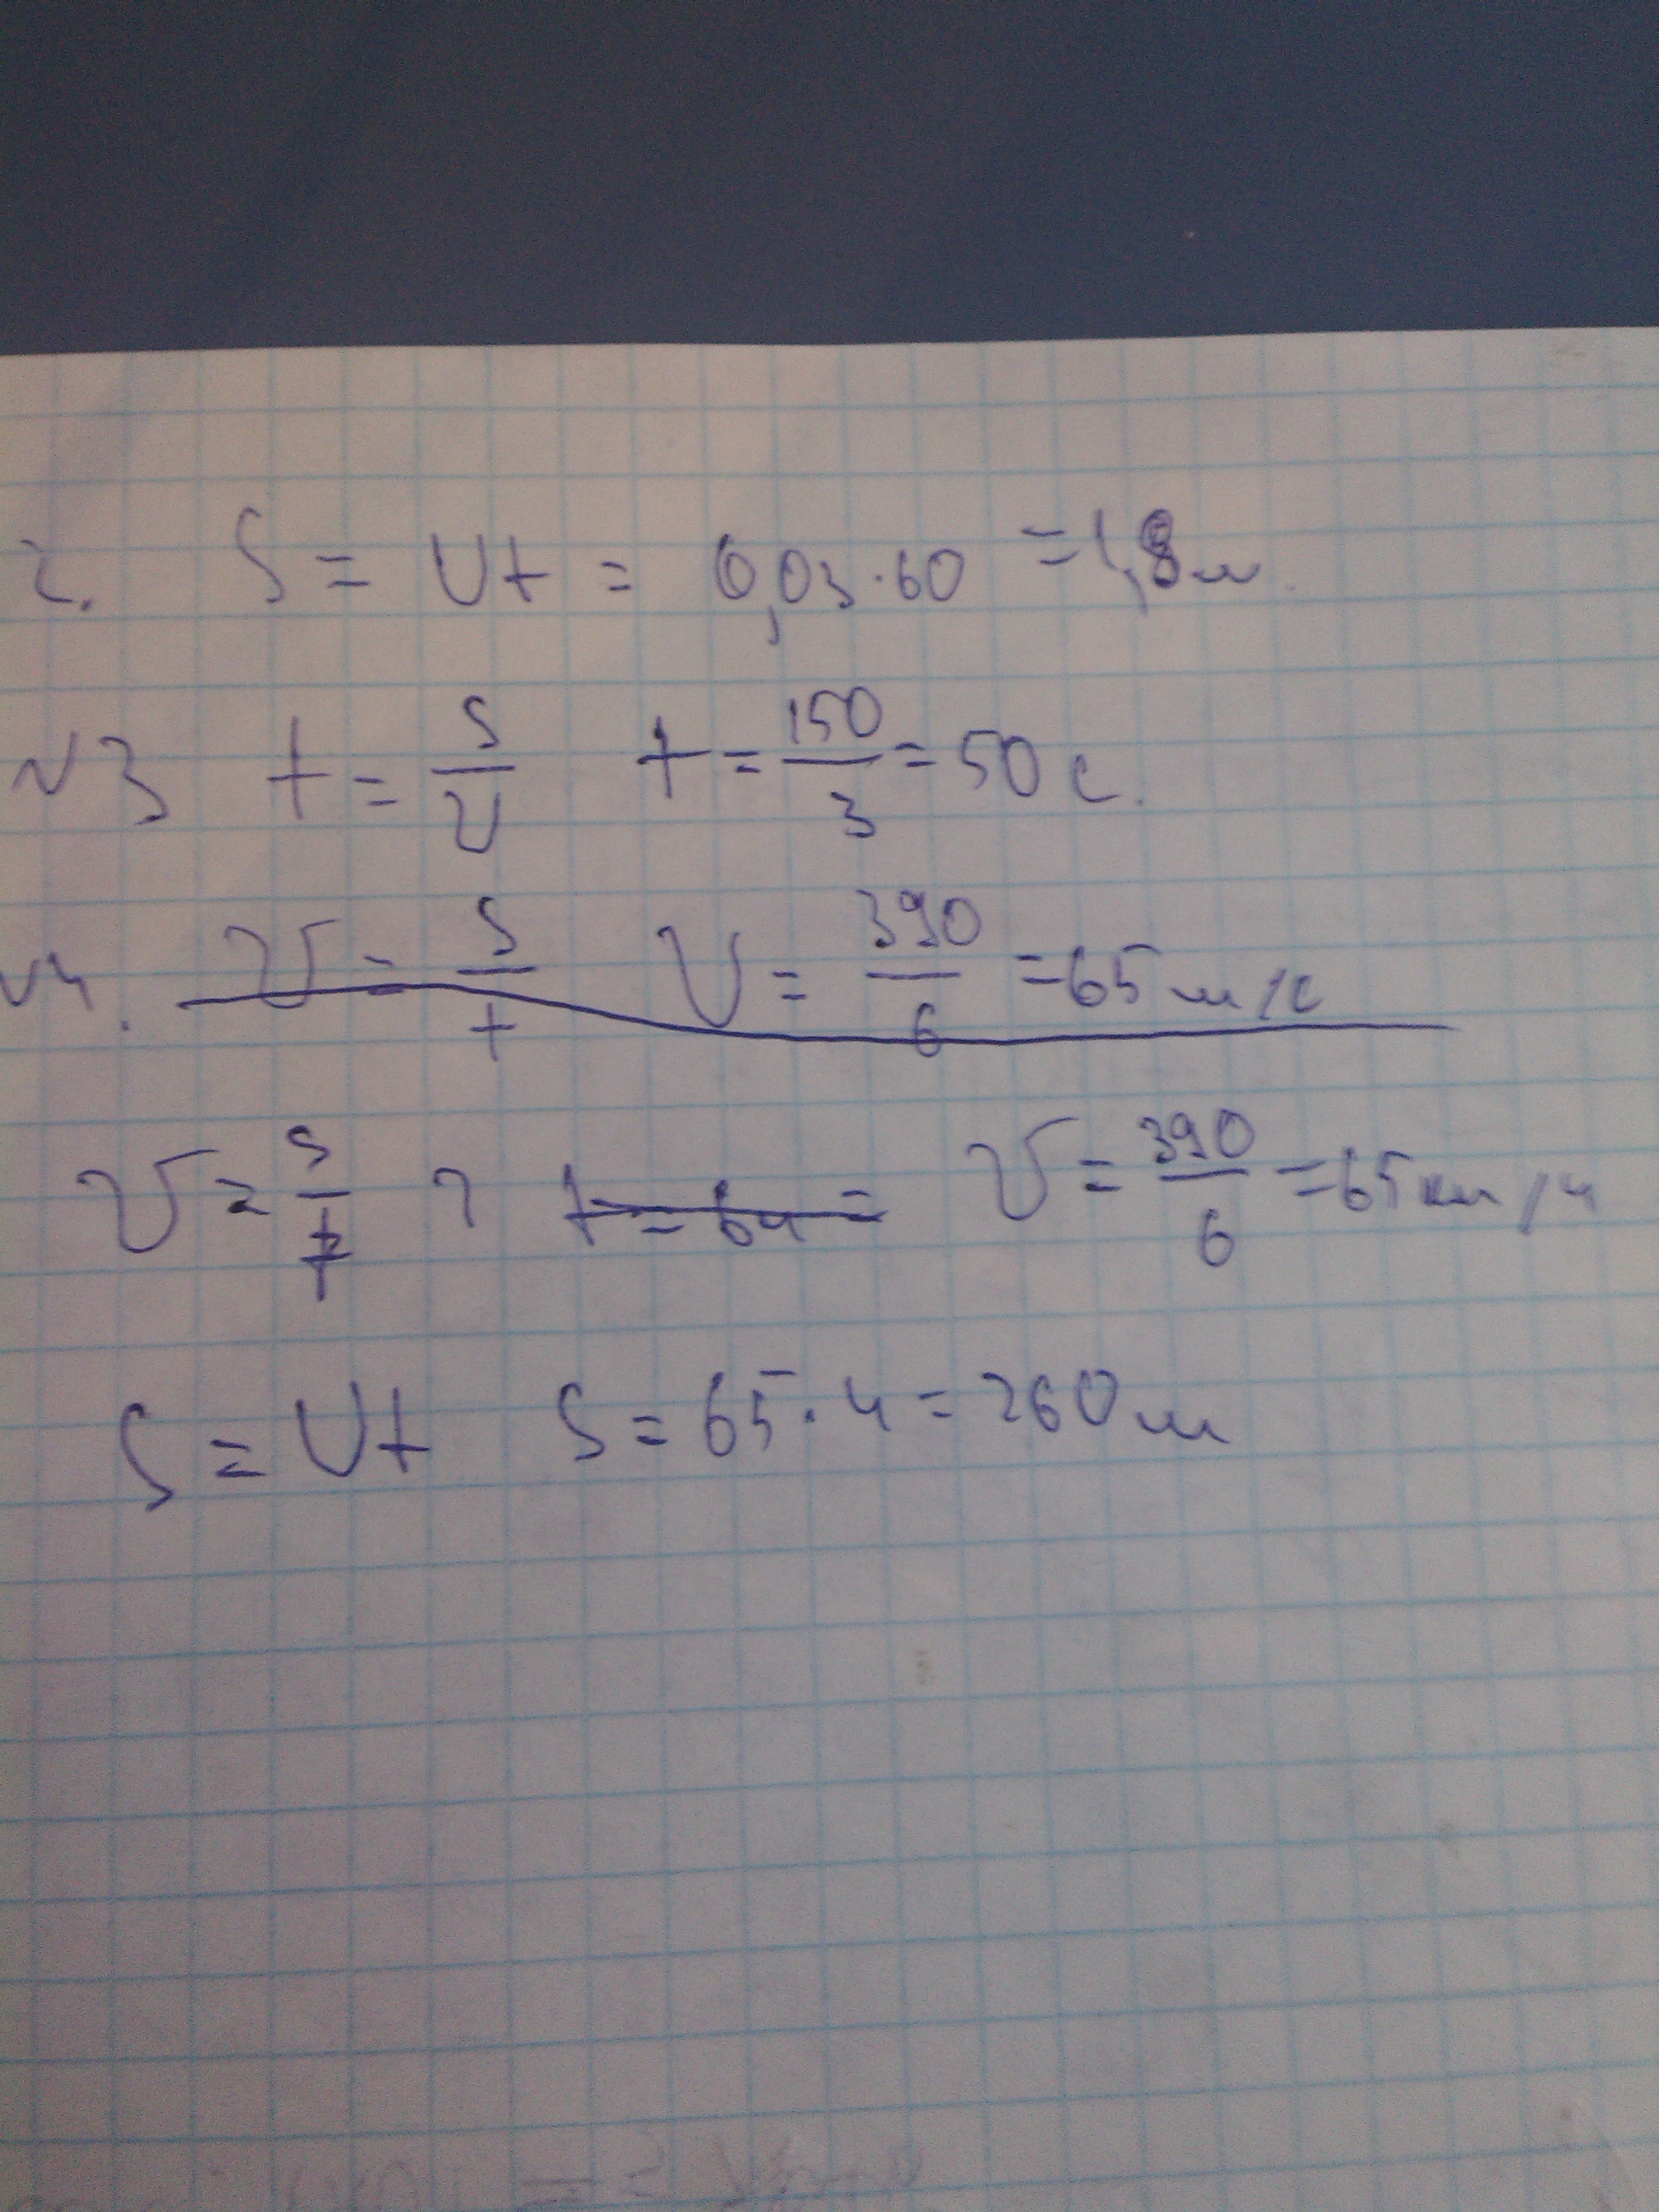 2. S = Ut = 0,03·60 = 1,8 м.
N3 t = S/V t = 150/3 = 50 с.
N4. V = S/t V = 390/6 = 65 м/с
V = S/t ? t = 6ч = V = 390/6 = 65 км/ч
S = Ut S = 65·4 = 260 м